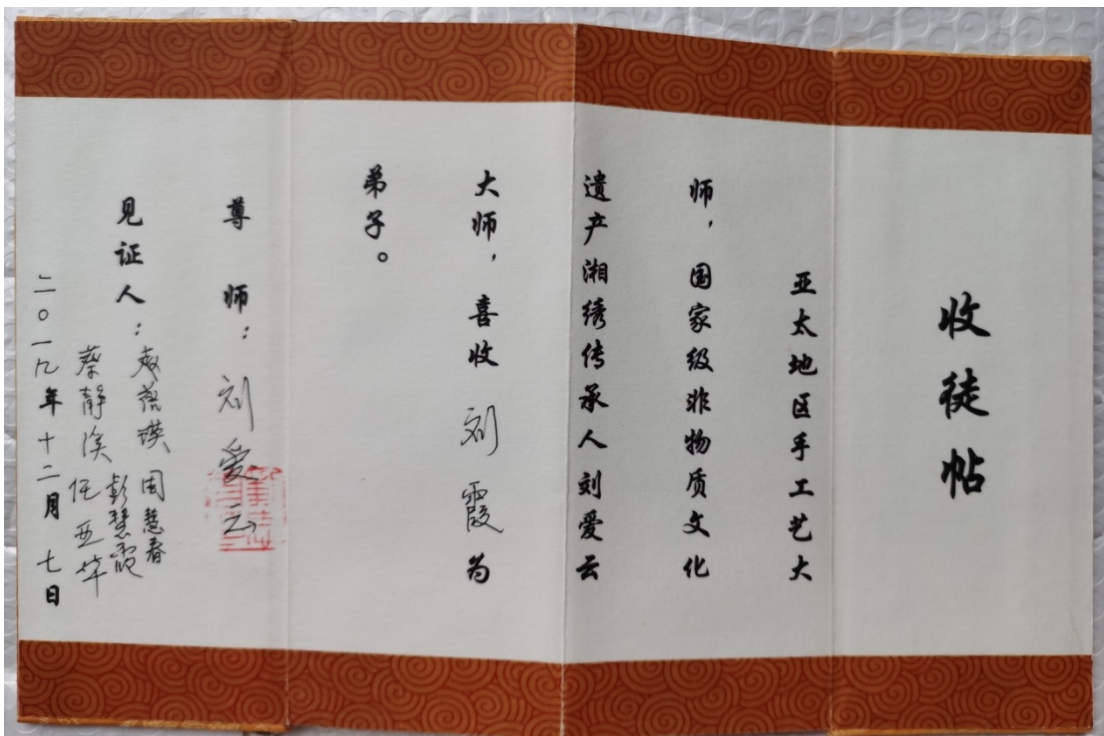 收徒帖
亚太地区手工艺大
师，国家级非物质文化
遗产湘绣传承人刘爱云
大师，喜收刘霞为
弟子。
尊师：刘爱云
见证人：
周慧春
彭慧霞
二〇一九年十二月七日